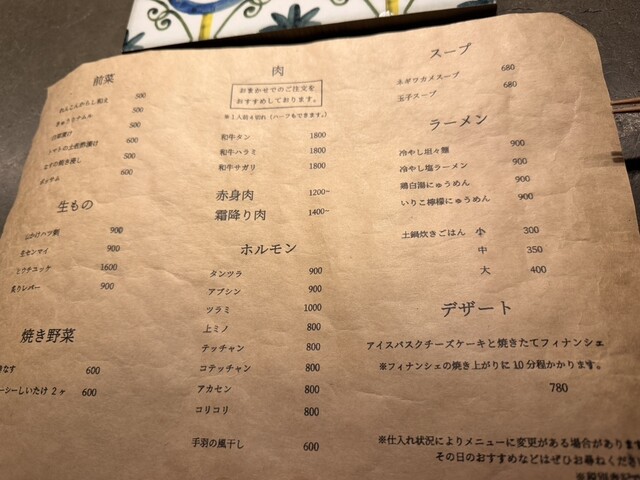 前菜
れんこんからし和え 500
きゅうりナムル 500
白菜漬け 500
トマトの土佐酢漬け 600
なすの焼き浸し 500
ポッサム 600
生もの
ハツ刺 900
生センマイ 900
とろユッケ 1600
炙りレバー 900
焼き野菜
なす 600
ーシーしいたけ 2ヶ 600
肉
おまかせでのご注文を
おすすめしております。
※1人前4切れ(ハーフもできます。)
和牛タン 1800
和牛ハラミ 1800
和牛サガリ 1800
赤身肉 1200~
霜降り肉 1400~
ホルモン
タンツラ 900
アブシン 900
ツラミ 1000
上ミノ 800
テッチャン 800
コテッチャン 800
アカセン 800
コリコリ 800
手羽の風干し 600
スープ
ネギワカメスープ 680
玉子スープ 680
ラーメン
冷やし坦々麺 900
冷やし塩ラーメン 900
鶏白湯にゅうめん 900
いりこ檸檬にゅうめん 900
土鍋炊きごはん 小 300
中 350
大 400
デザート
アイスバスクチーズケーキと焼きたてフィナンシェ
※フィナンシェの焼き上がりに10分程かかります。
780
※仕入れ状況によりメニューに変更がある場合があります
その日のおすすめなどはぜひお尋ねくださ